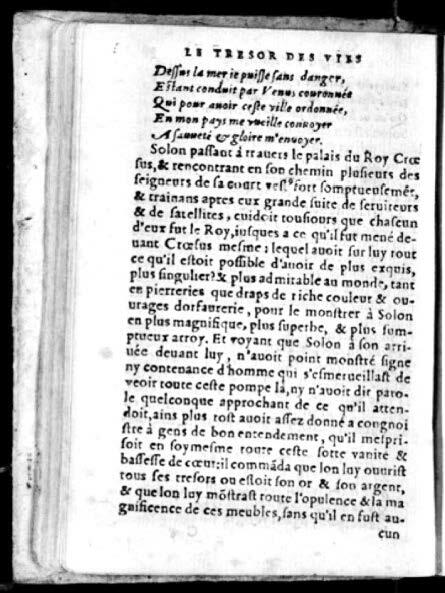 LE TRESOR DES VIES
Dessus la mer ie puisse sans danger,
Estant conduit par Venus couronnée
Qui pour auoir ceste ville ordonnée,
En mon pays me vueille conuoyer
A sauueté & gloire m'enuoyer.
Solon passant à trauers le palais du Roy Crœ
sus, & rencontrant en son chemin plusieurs des
seigneurs de sa court vest⁹ fort somptueusemēt,
& trainans apres eux grande suite de seruiteurs
& de satellites, cuidoit tousiours que chascun
d'eux fut le Roy, iusques a ce qu'il fut mené de-
uant Crœsus mesme: lequel auoit sur luy tout
ce qu'il estoit possible d'auoir de plus exquis,
plus singulier & plus admirable au monde, tant
en pierreries que draps de riche couleur & ou-
urages dorfaurerie, pour le monstrer à Solon
en plus magnifique, plus superbe, & plus sum-
ptueux arroy. Et voyant que Solon à son arri-
uée deuant luy, n'auoit point monstré signe
ny contenance d'homme qui s'esmerueillast de
veoir toute ceste pompe là, ny n'auoit dit paro-
le quelconque approchant de ce qu'il atten-
doit, ains plus tost auoit assez donné a congnoi
stre à gens de bon entendement, qu'il mespri-
soit en soymesme toute ceste sotte vanité &
bassesse de cœur: il commāda que lon luy ouurist
tous ses tresors ou estoit son or & son argent,
& que lon luy mōstrast toute l'opulence & la ma
gnificence de ces meubles, sans qu'il en fust au-
cun